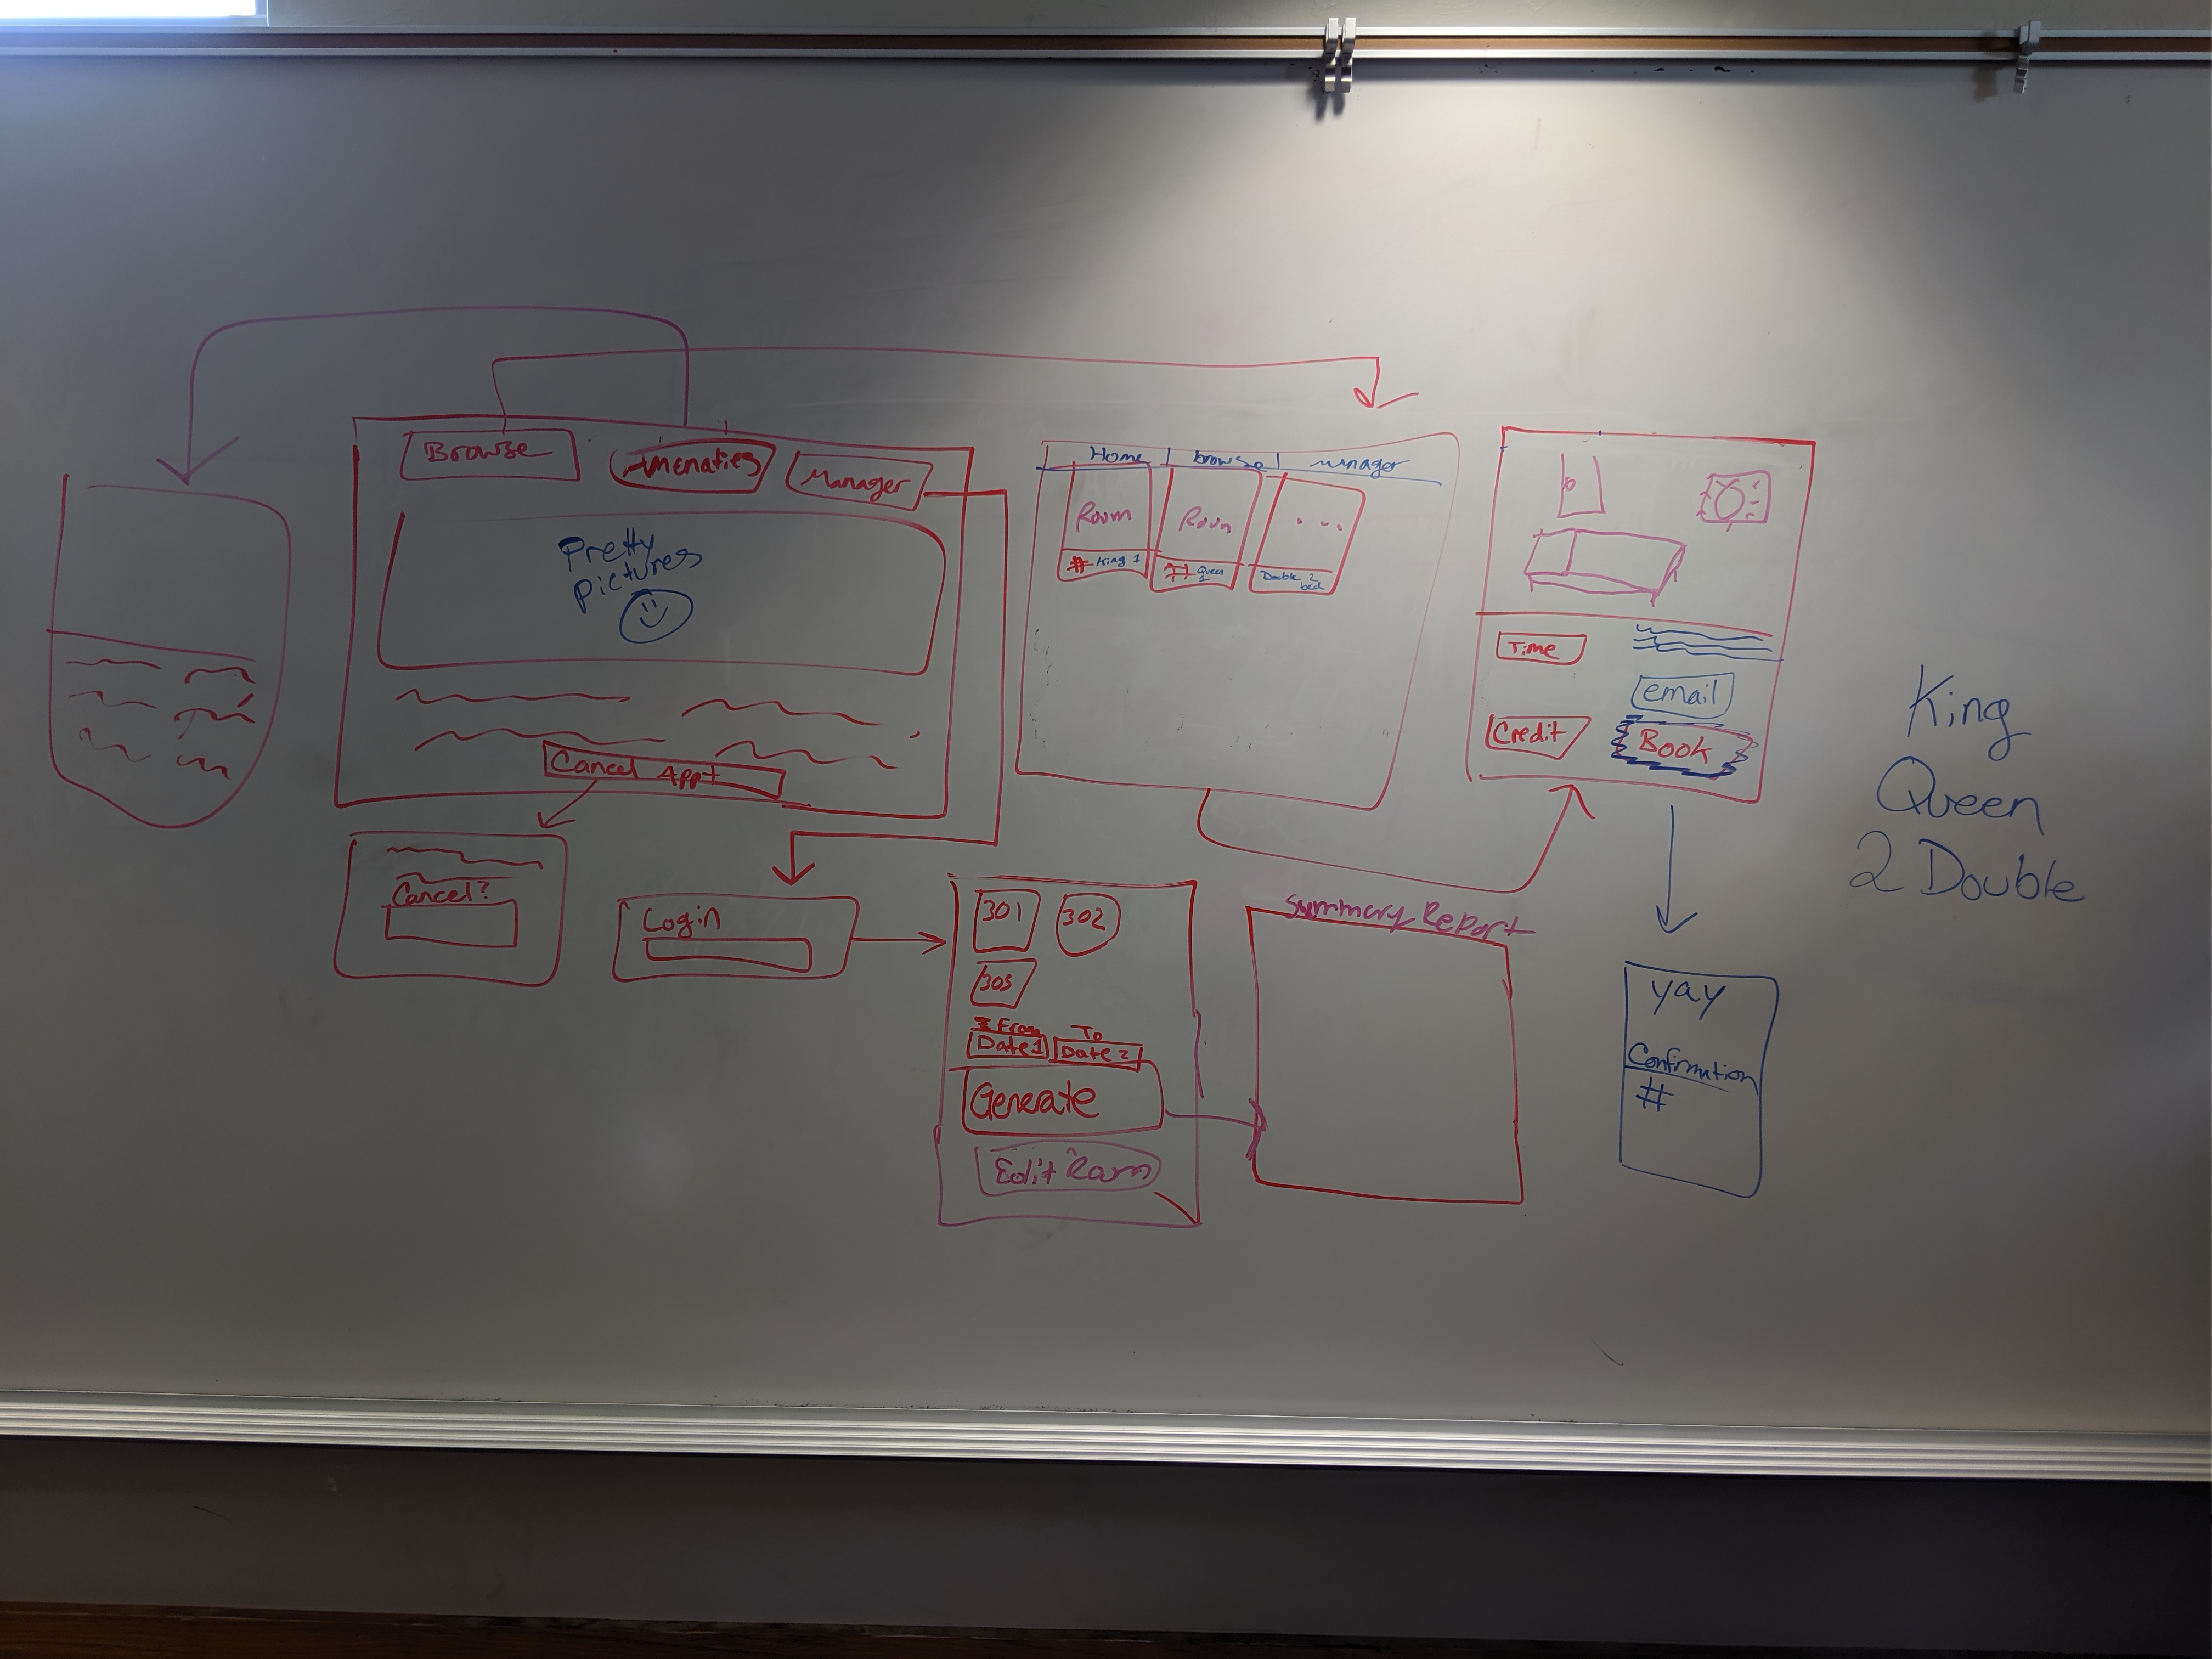 Browse
Amenaties
Manager
Pretty
pictures
Cancel Appt
Cancel?
Login
Home | browse | manager
Room
Room
...
# King 1
# Queen
1
Double 2
bed
Time
email
Credit
Book
King
Queen
2 Double
301
302
303
From
To
Date 1
Date 2
Generate
Edit Room
Summary Report
yay
Confirmation
#